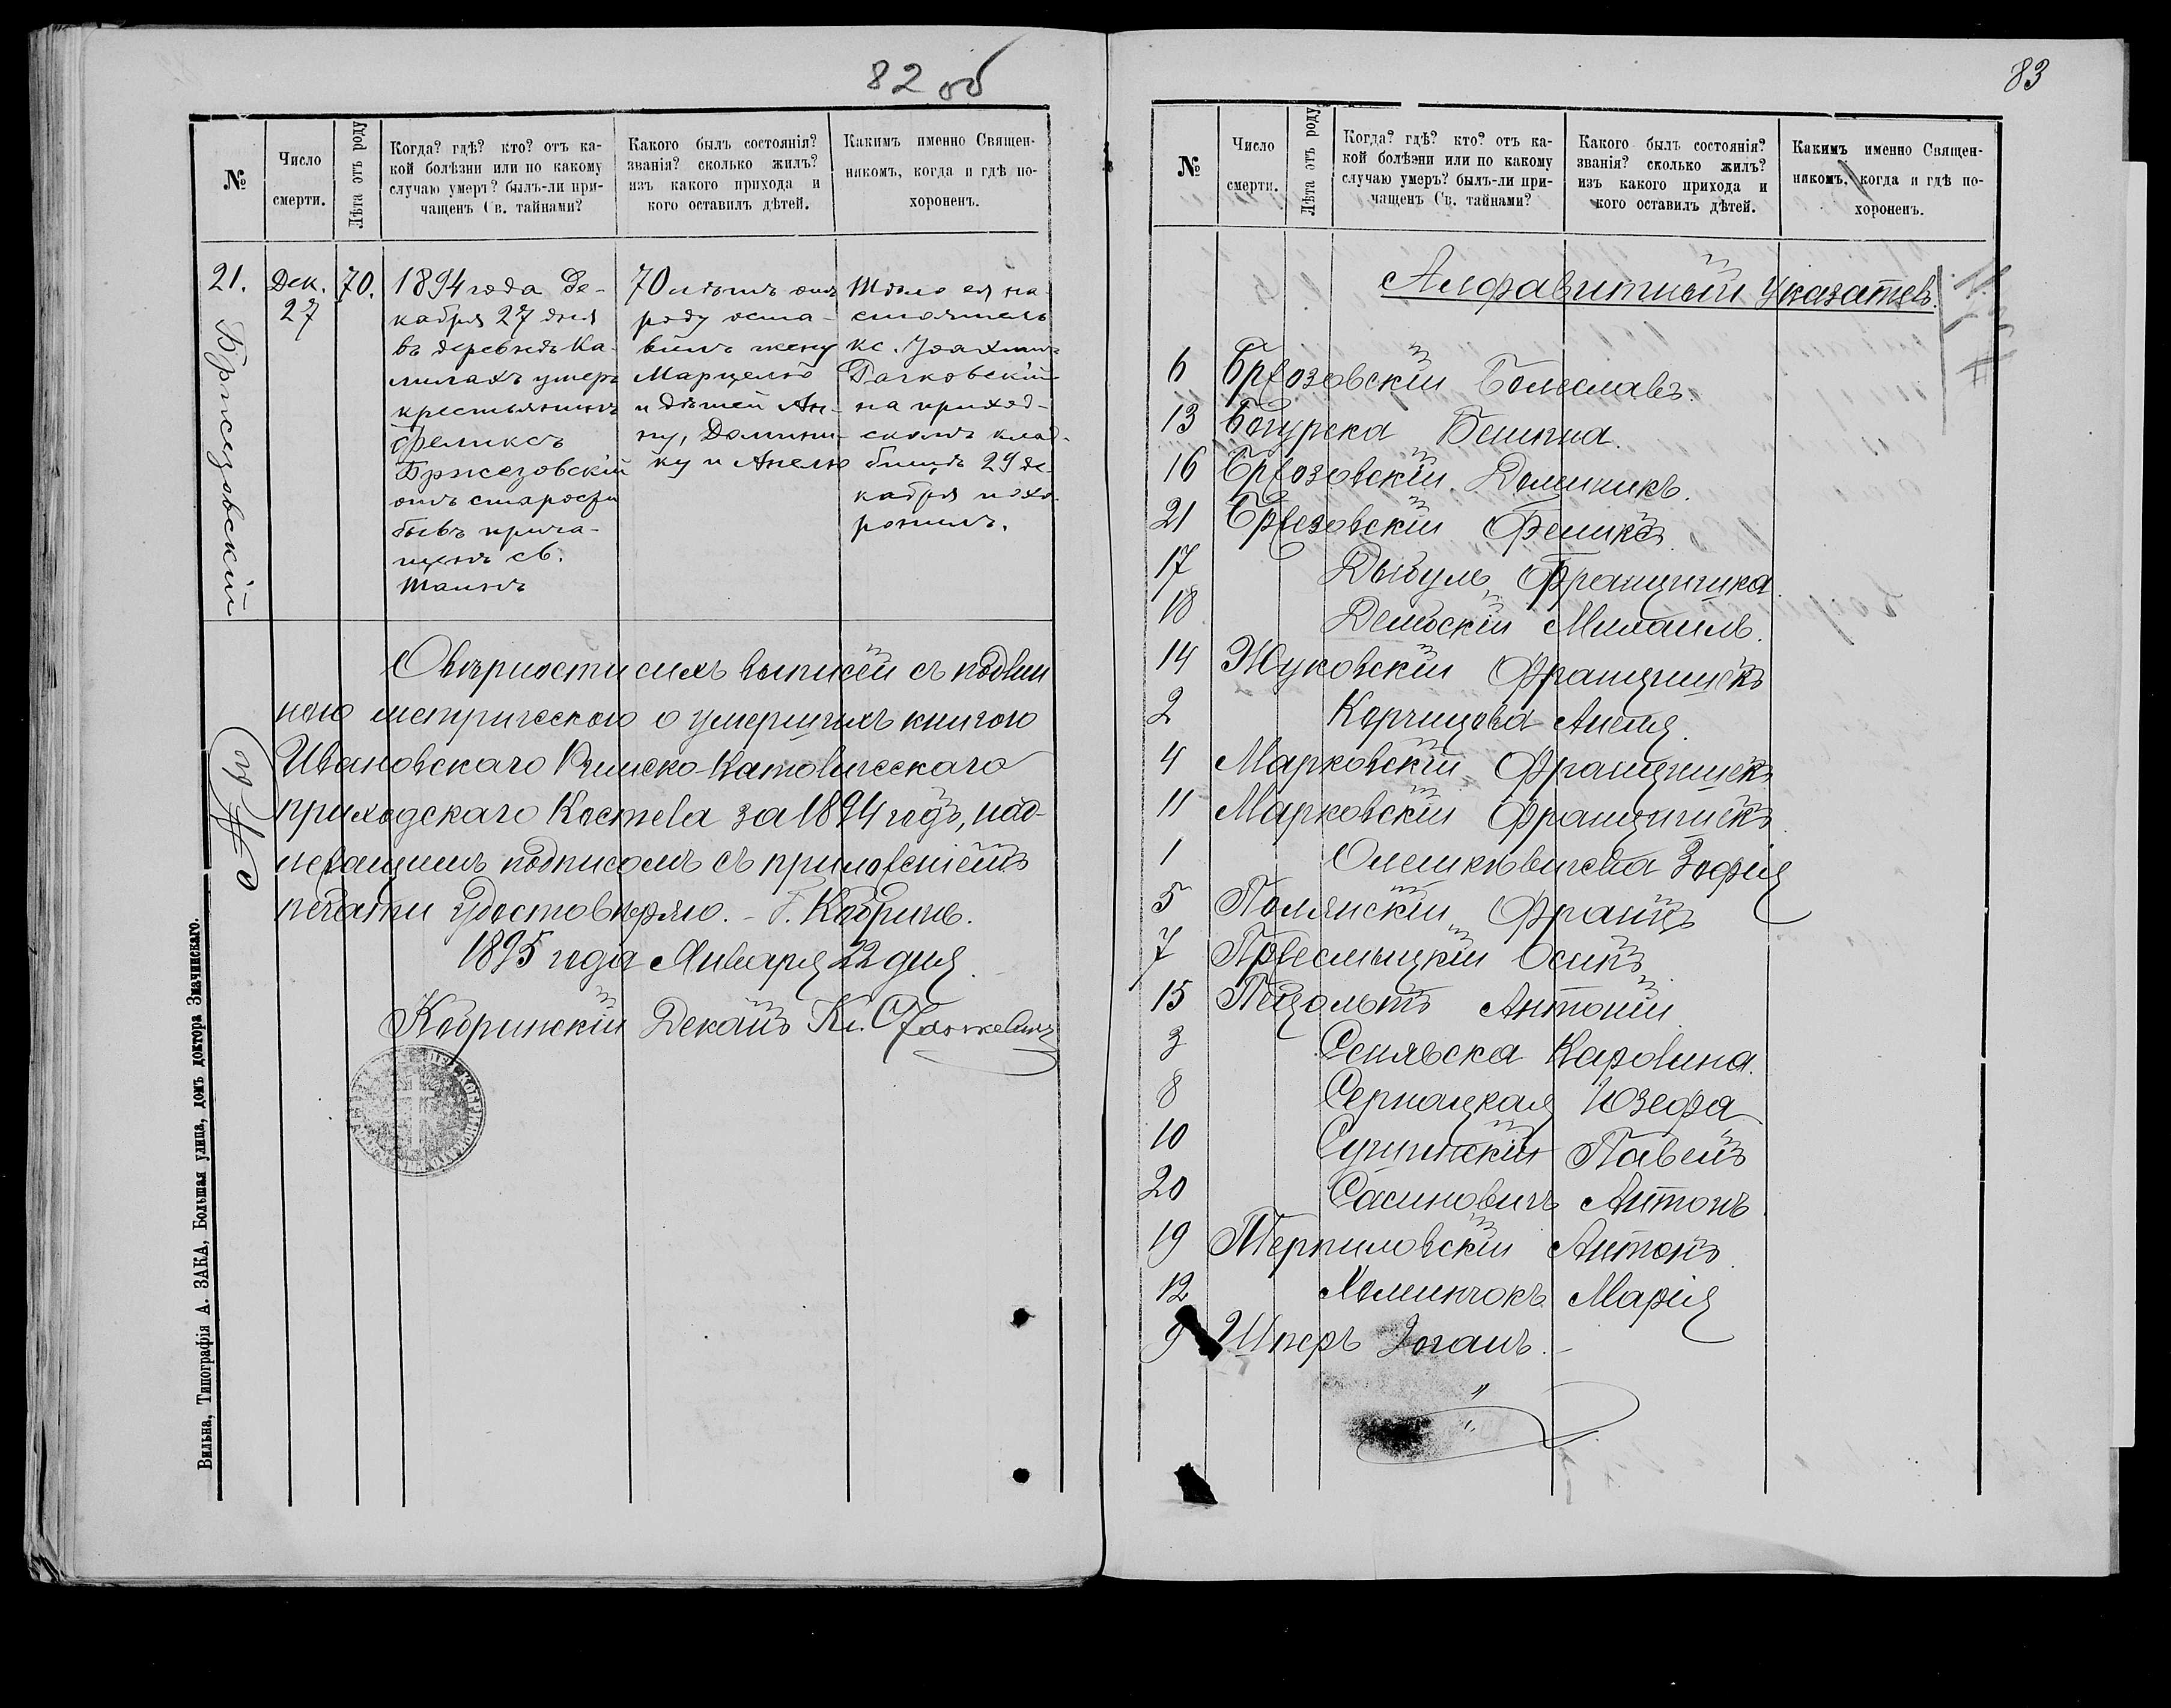 82 об
№
Число смерти.
Лѣта отъ роду
Когда? гдѣ? кто? отъ ка-
кой болѣзни или по какому
случаю умеръ? былъ-ли при-
чащенъ Св. тайнами?
Какого былъ состоянія?
званія? сколько жилъ?
изъ какого прихода и
кого оставилъ дѣтей.
Какимъ именно Священ-
никомъ, когда и гдѣ по-
хороненъ.
21.
Бржезовскій
Дек.
27
70.
1894 года Де-
кабря 27 дня
въ деревнѣ Ка-
лилахъ умеръ
крестьянинъ
Феликсъ
Бржезовскій
отъ старости
бывъ прича-
щенъ св.
Таинъ
70 лѣтъ отъ
роду оста-
вилъ жену
Марцелю
и дѣтей Ан-
ну, Домини-
ку и Анелю
Тѣло ея на-
стоятель
кс. Іоахимъ
Рачковскій
на приход-
скомъ клад-
бищѣ 29 де-
кабря похо-
ронилъ.
О вѣрности сихъ выписей съ подлин
ною метрическою о умершихъ книгою
Ивановскаго Римско-Католическаго
приходскаго Костела за 1894 годъ, над-
лежащимъ подписомъ съ приложеніемъ
печати удостовѣряю. - Г. Кобринъ.
1895 года Января 22 дня.
Кобринскій Деканъ Кс.
Вильна, Типографія А. ЗАКА, Большая улица, домъ доктора Значинскаго.
83
№
Число смерти.
Лѣта отъ роду
Когда? гдѣ? кто? отъ ка-
кой болѣзни или по какому
случаю умеръ? былъ-ли при-
чащенъ Св. тайнами?
Какого былъ состоянія?
званія? сколько жилъ?
изъ какого прихода и
кого оставилъ дѣтей.
Какимъ именно Священ-
никомъ, когда и гдѣ по-
хороненъ.
Алфавитный Указатель.
6 Бржозовскій Болеславъ.
13 Богурска
16 Бржозовскій Доминикъ.
21 Бржезовскій Феликсъ
17 Дыбуль Францишка.
18 Дембскій Михаилъ.
14 Жуковскій Францишекъ
2 Корчицова Анеля.
4 Марковскій Францишекъ
11 Марковскій Францишекъ
1 Олешкѣвичева Зофія
5 Полянскій Францъ
7 Пржесмыцкій Осипъ
15 Пецольтъ Антоній
3 Сенявска Каролина.
8 Сернацкая Юзефа
10 Сушинскій Павелъ
20 Сасиновичъ Антонъ.
19 Терпиловскій Антонъ.
12 Хоминчокъ Марія
9 Шперъ Іоганъ.